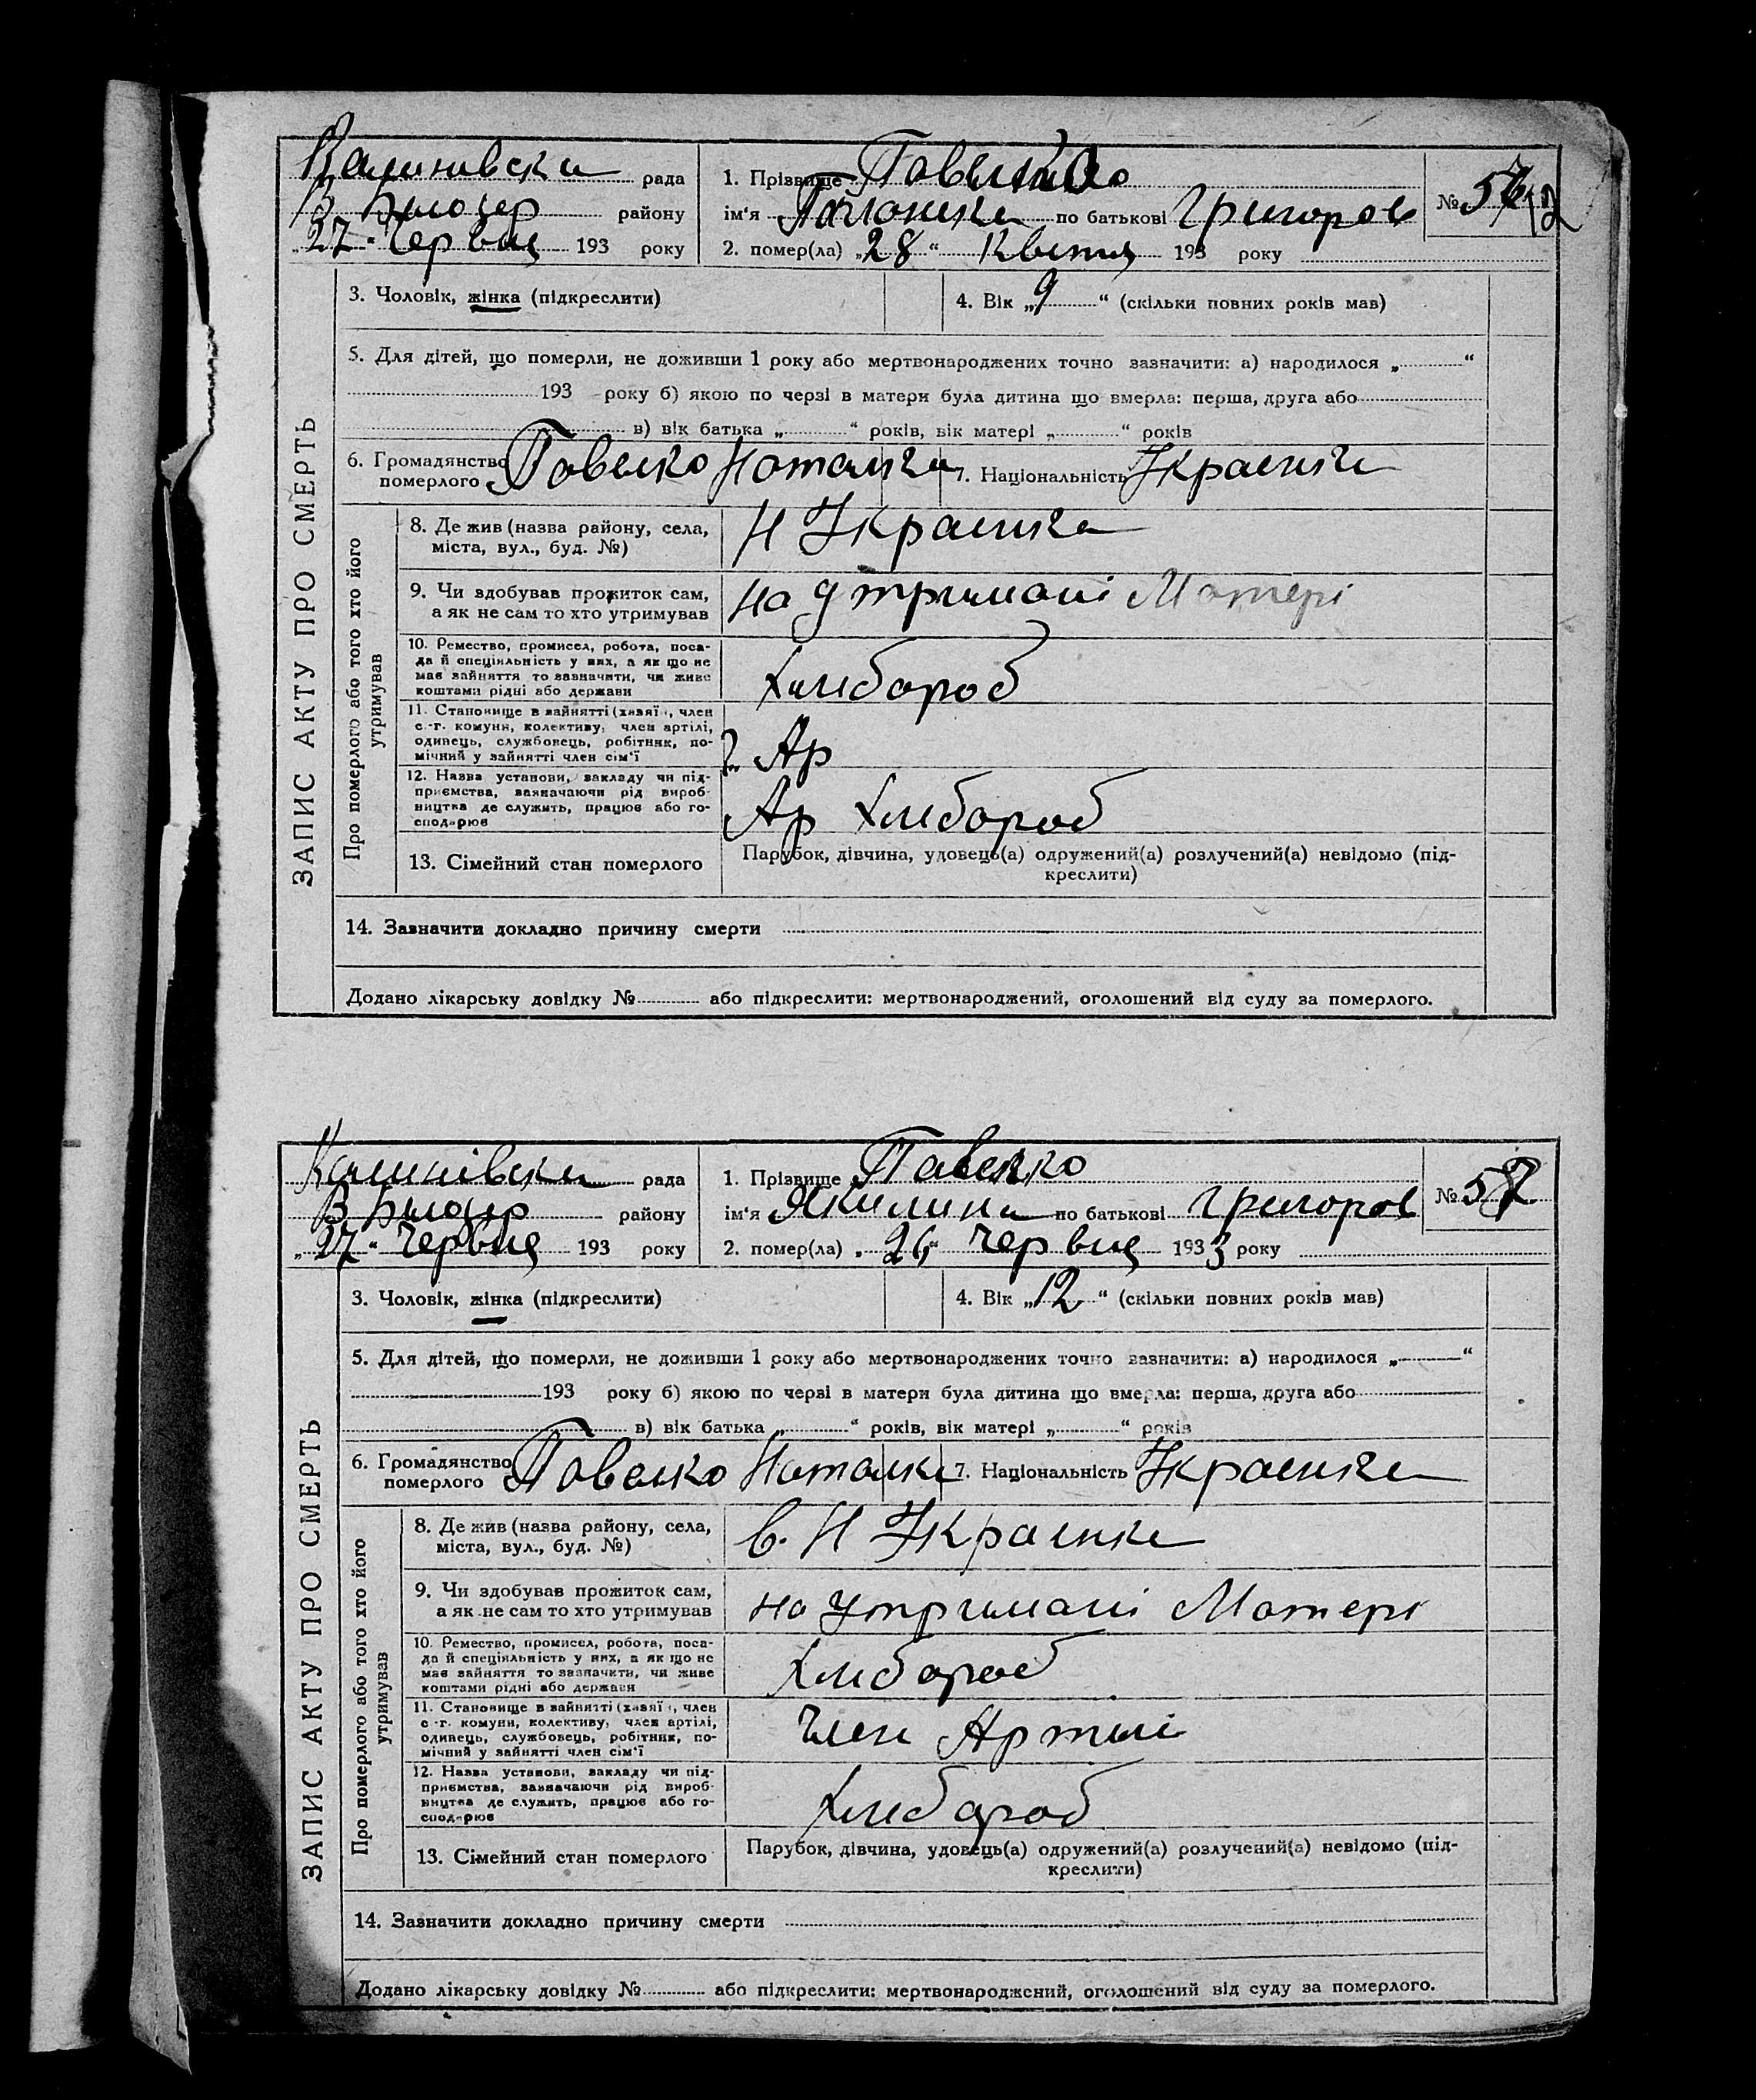 ЗАПИС АКТУ ПРО СМЕРТЬ
Калинивска рада
В Билозер району
„27“ Червня 193 року
1. Прізвище Павелко
ім'я по батькові Григоров
2. помер(ла) „28“ Квітня 193 року
№ 56
3. Чоловік, жінка (підкреслити)
4. Вік „9“ (скільки повних років мав)
5. Для дітей, що померли, не доживши 1 року або мертвонароджених точно зазначити: а) народилося „ “
193 року б) якою по черзі в матери була дитина що вмерла: перша, друга або
в) вік батька „ “ років, вік матері „ “ років
6. Громадянство померлого Павелко Наталка
7. Національність Украенка
Про померлого або того хто його утримував
8. Де жив (назва району, села, міста, вул., буд. №)
Н Украенка
9. Чи здобував прожиток сам, а як не сам то хто утримував
на утримані Матері
10. Ремество, промисел, робота, поса-
да й спеціяльність у них, а як що не
має зайняття то зазначити, чи живе
коштами рідні або держави
Хлибороб
11. Становище в зайнятті (хазяї, член
с.-г. комуни, колективу, член артілі,
одинець, службовець, робітник, по-
мічний у зайнятті член сім'ї
Ар
12. Назва установи, закладу чи під-
приємства, зазначаючи рід вироб-
ництва де служить, працює або го-
сподарює
Ар Хлибороб
13. Сімейний стан померлого
Парубок, дівчина, удовець(а) одружений(а) розлучений(а) невідомо (під-
креслити)
14. Зазначити докладно причину смерти
Додано лікарську довідку № або підкреслити: мертвонароджений, оголошений від суду за померлого.
ЗАПИС АКТУ ПРО СМЕРТЬ
Калинівска рада
В Билозер району
„27“ Червня 193 року
1. Прізвище Павелко
ім'я Якилина по батькові Григоров
2. помер(ла) „26“ Червня 1933 року
№ 57
3. Чоловік, жінка (підкреслити)
4. Вік „12“ (скільки повних років мав)
5. Для дітей, що померли, не доживши 1 року або мертвонароджених точно зазначити: а) народилося „ “
193 року б) якою по черзі в матери була дитина що вмерла: перша, друга або
в) вік батька „ “ років, вік матері „ “ років
6. Громадянство померлого Павелко Наталка
7. Національність Украенка
Про померлого або того хто його утримував
8. Де жив (назва району, села, міста, вул., буд. №)
в. Н Украенке
9. Чи здобував прожиток сам, а як не сам то хто утримував
на утримані Матері
10. Ремество, промисел, робота, поса-
да й спеціяльність у них, а як що не
має зайняття то зазначити, чи живе
коштами рідні або держави
Хлибороб
11. Становище в зайнятті (хазяї, член
с.-г. комуни, колективу, член артілі,
одинець, службовець, робітник, по-
мічний у зайнятті член сім'ї
Член Артилі
12. Назва установи, закладу чи під-
приємства, зазначаючи рід вироб-
ництва де служить, працює або го-
сподарює
Хлибороб
13. Сімейний стан померлого
Парубок, дівчина, удовець(а) одружений(а) розлучений(а) невідомо (під-
креслити)
14. Зазначити докладно причину смерти
Додано лікарську довідку № або підкреслити: мертвонароджений, оголошений від суду за померлого.